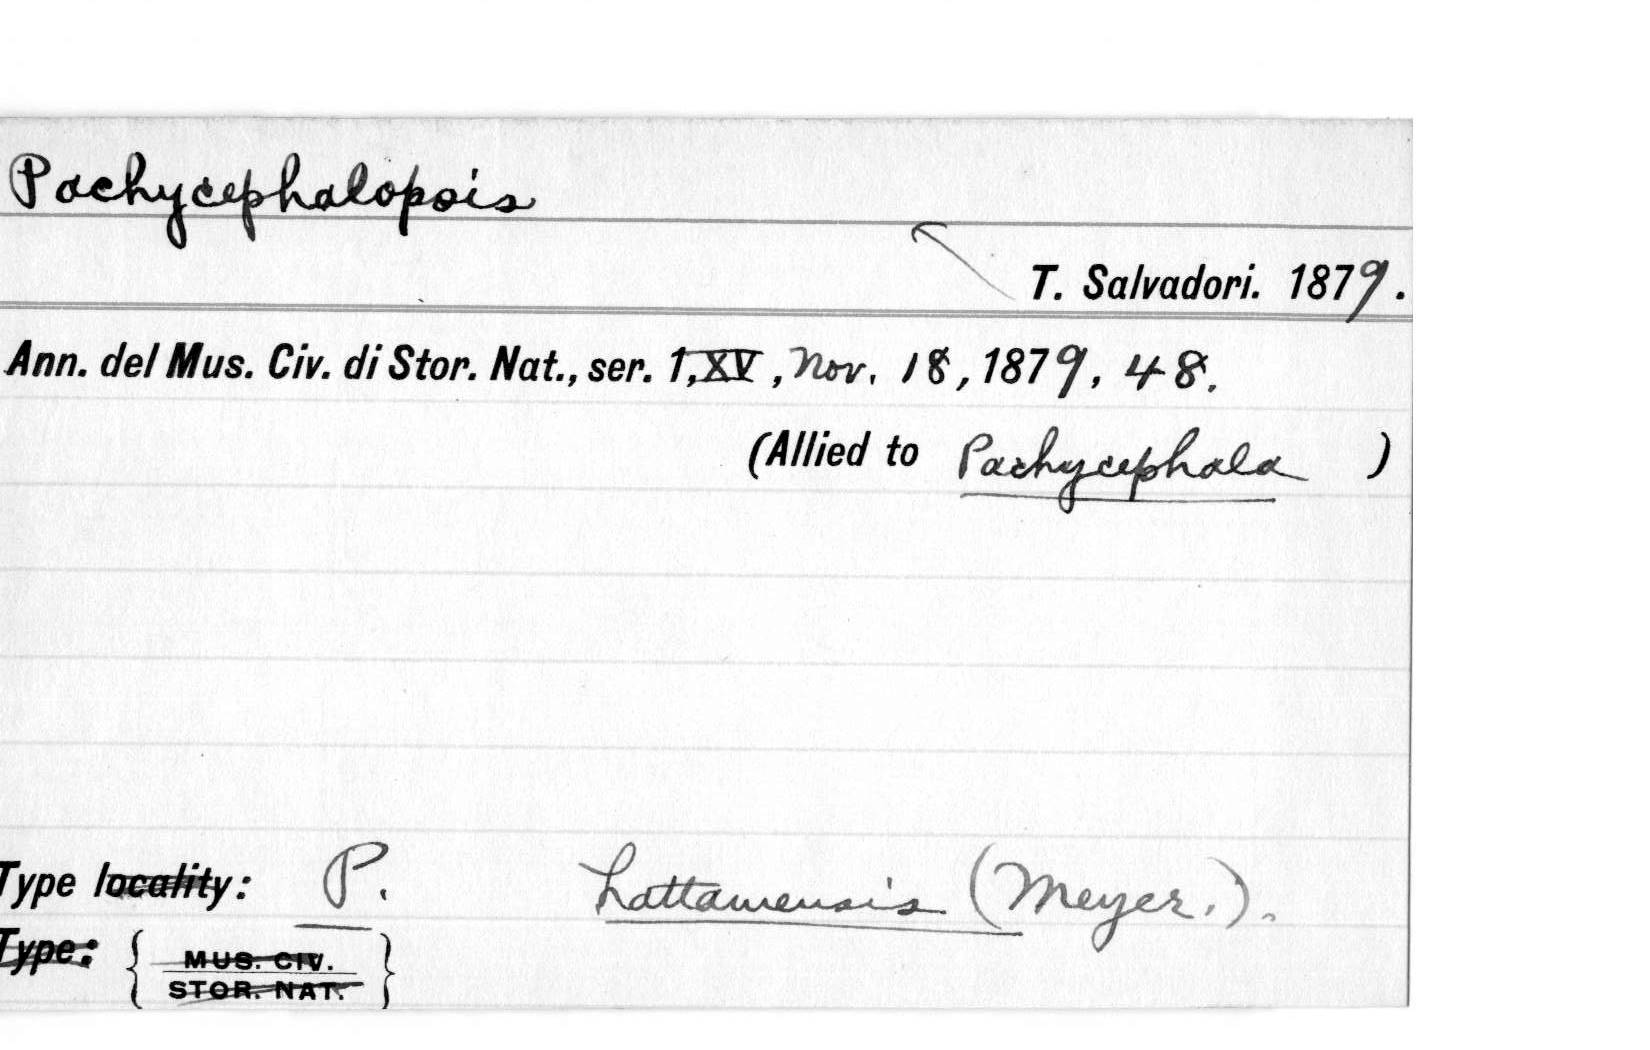 Pachycephalopsis
T. Salvadori. 1879.
Ann. del Mus. Civ. di Stor. Nat., ser. 1, XV, Nov. 18, 1879, 48.
(Allied to Pachycephala )
Type locality: P. hattamensis (Meyer.).
Type: { MUS. CIV.
STOR. NAT. }